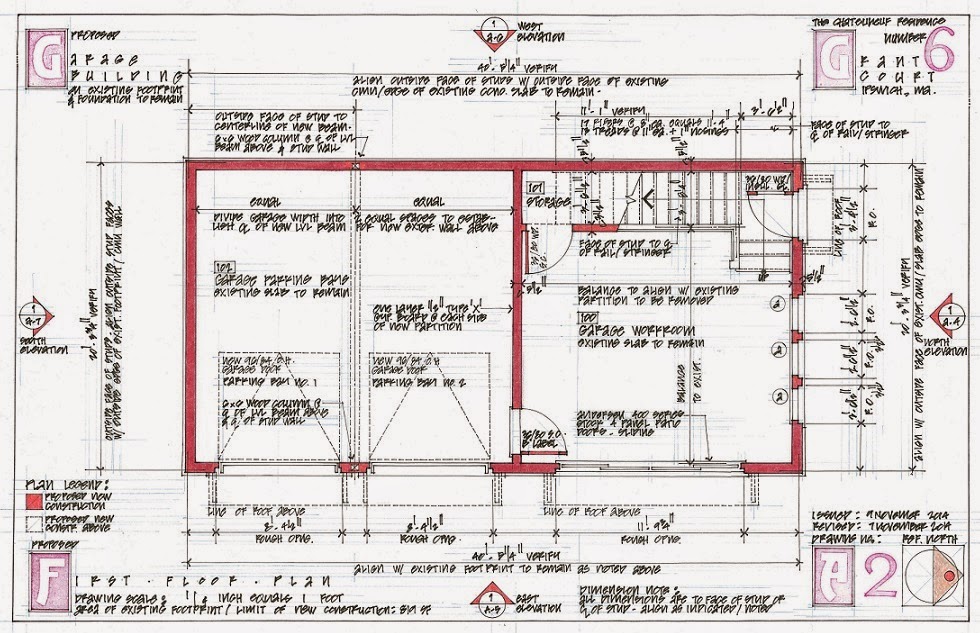 PROPOSED
GARAGE
BUILDING
ON EXISTING FOOTPRINT
& FOUNDATION TO REMAIN
1
A-6
WEST
ELEVATION
RESIDENCE
NUMBER 6
GRANT
COURT
IPSWICH, MA.
40'- 8 1/4" VERIFY
ALIGN OUTSIDE FACE OF STUDS W/ OUTSIDE FACE OF EXISTING
CMU/EDGE OF EXISTING CONC. SLAB TO REMAIN.
OUTSIDE FACE OF STUD TO
CENTERLINE OF NEW BEAM.
6X6 WOOD COLUMN @ OF LVL
BEAM ABOVE & STUD WALL
11'- 1" VERIFY
FACE OF STUD TO
OF RAIL/STRINGER
EQUAL
EQUAL
DIVIDE GARAGE WIDTH INTO 2 EQUAL SPACES TO ESTAB-
LISH OF NEW LVL BEAM FOR NEW EXTER. WALL ABOVE
101
STORAGE
FACE OF STUD TO
OF RAIL/STRINGER
102
GARAGE PARKING BAYS
EXISTING SLAB TO REMAIN
ONE LAYER 5/8" TYPE 'X'
GYP. BOARD @ EACH SIDE
OF NEW PARTITION
BALANCE TO ALIGN W/ EXISTING
PARTITION TO BE REMOVED
100
GARAGE WORKROOM
EXISTING SLAB TO REMAIN
2
2
2
LINE OF ROOF
R.O.
R.O.
R.O.
20'- 3 3/4" VERIFY
20'- 3 3/4" VERIFY
ALIGN W/ OUTSIDE FACE OF EXIST. CMU/SLAB EDGE TO REMAIN
1
A-7
SOUTH
ELEVATION
1
A-4
NORTH
ELEVATION
NEW 96/84 O.H.
GARAGE DOOR
PARKING BAY NO. 1
NEW 96/84 O.H.
GARAGE DOOR
PARKING BAY NO. 2
6X6 WOOD COLUMN @
OF LVL BEAM ABOVE
& OF STUD WALL
BALANCE
TO EXIST.
ANDERSEN 400 SERIES
STOCK 4 PANEL PATIO
DOORS - SLIDING
LINE OF ROOF ABOVE
LINE OF ROOF ABOVE
8'- 4 1/2"
8'- 4 1/2"
11'- 9 3/4"
ROUGH OPNG.
ROUGH OPNG.
ROUGH OPNG.
40'- 8 1/4" VERIFY
ALIGN W/ EXISTING FOOTPRINT TO REMAIN AS NOTED ABOVE
PLAN LEGEND:
PROPOSED NEW
CONSTRUCTION
PROPOSED NEW
CONSTR. ABOVE
PROPOSED
FIRST . FLOOR . PLAN
DRAWING SCALE: 1/4 INCH EQUALS 1 FOOT
AREA OF EXISTING FOOTPRINT / LIMIT OF NEW CONSTRUCTION: 819 SF
1
A-5
EAST
ELEVATION
DIMENSION NOTE:
ALL DIMENSIONS ARE TO FACE OF STUD OR
OF STUD - ALIGN AS INDICATED / NOTED
ISSUED: 9 NOVEMBER 2014
REVISED: 9 NOVEMBER 2014
DRAWING NO.: REF. NORTH
A2